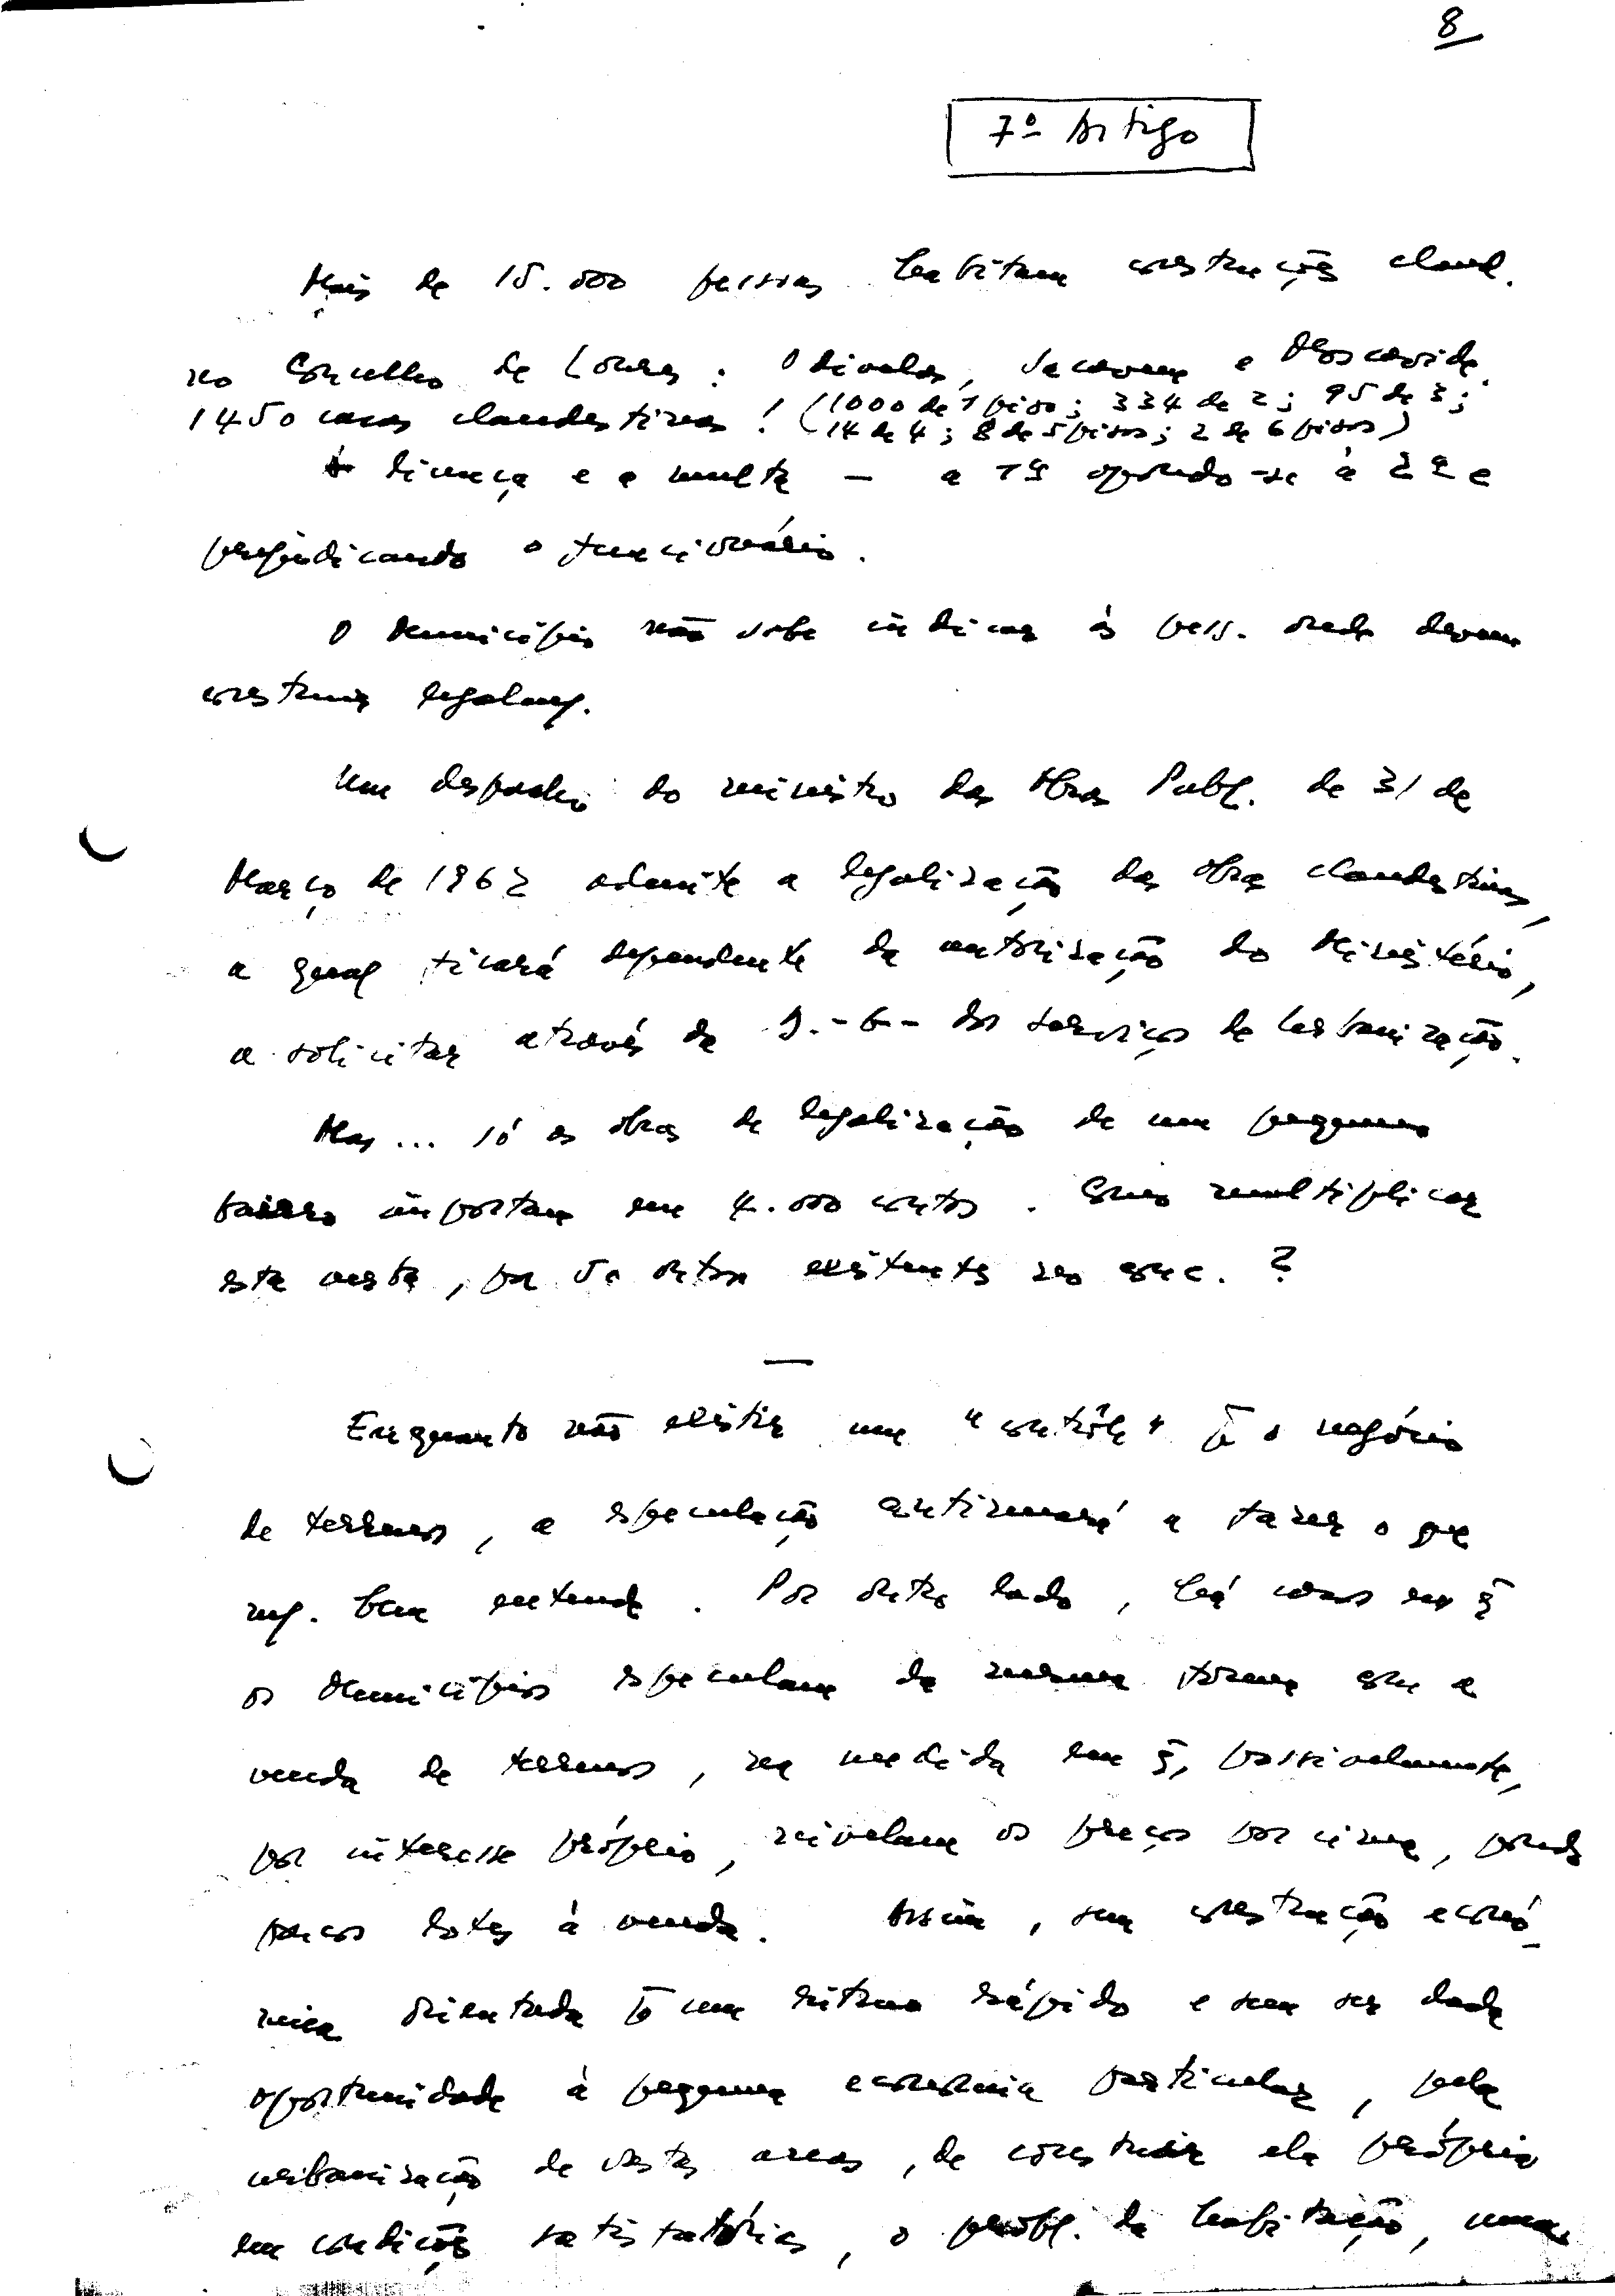 8
7º Artigo
Mais de 15.000 pessoas habitam construções cland.
no Concelho de Loures: Odivelas, Sacavem e Moscavide.
1450 casas clandestinas! (1000 de 1 piso; 334 de 2; 95 de 3;
14 de 4; 8 de 5 pisos; 2 de 6 pisos)
A licença e a multa — a 1ª opondo-se à 2ª e
prejudicando o funcionário.
O Município não sabe indicar às pess. onde devem
construir legalmͭ.
Um despacho do ministro das Obras Publ. de 31 de
Março de 1962 admite a legalização das obras clandestinas,
a qual ficará dependente da autorização do Ministério,
a solicitar através da D.-G- dos serviços de Urbanização.
Mas... só as obras de legalização de um pequeno
bairro importam em 4.000 contos. Como multiplicar
esta verba, por 50 outros existentes no conc.?
—
Enquanto não existir um "contrôle" p̄ o negócio
de terrenos, a especulação continuará a fazer o que
mͭ. bem entende. Por outro lado, há casos em q̄
os Municípios especulam da mesma forma com a
venda de terrenos, na medida em q̄, possivelmente,
por interesse próprio, nivelam os preços por cima, pondo
poucos lotes à venda. Assim, sem construção econó-
mica orientada p̄ um ritmo rápido e sem ser dada
oportunidade à pequena economia particular, pela
urbanização de vastas areas, de construir ela própria
em condições satisfatórias, o probl. da habitação, uma